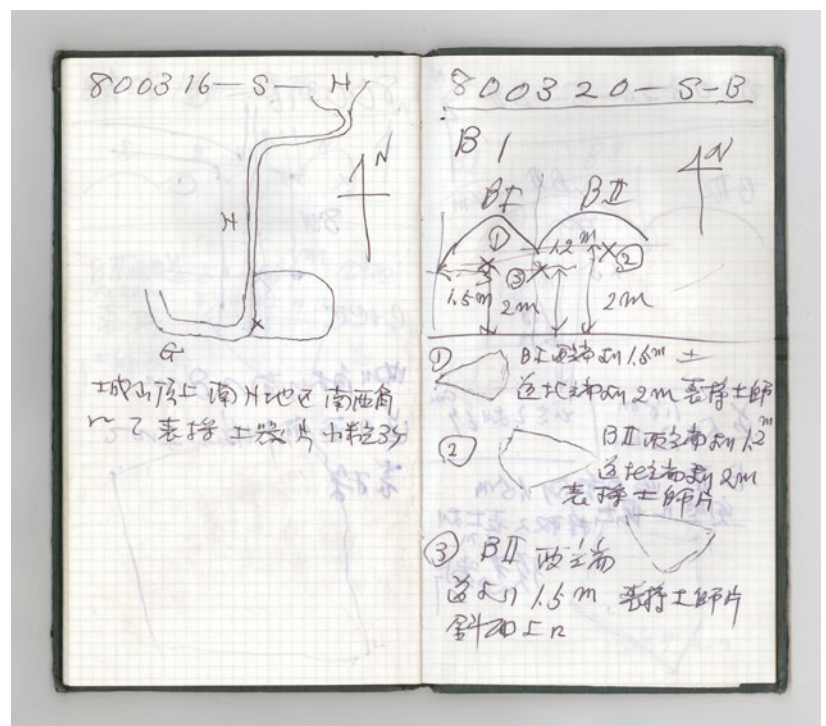 800316-S-H
N
H
G
城山頂上南H地区南西角
にて表採土器片小粒3ケ
800320-S-B
B1
N
BI BII
①
1.2m
②
③
1.5m
2m
2m
①
BI西端より1.5m
道北端より2m表採土師
②
BII西端より1.2m
道北端より2m
表採土師片
③ BII西端
道より1.5m 表採土師片
斜面